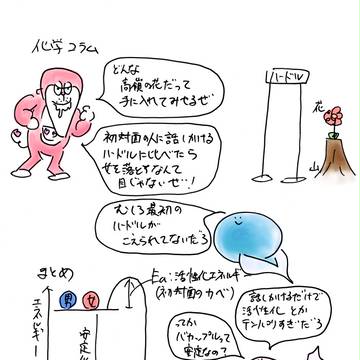 化学コラム
どんな
高嶺の花だって
手に入れてみせるぜ
ハードル
花
山
初対面の人に話しかける
ハードルに比べたら
女を落とすなんて
目じゃないぜ…!
むしろ最初の
ハードルが
こえられてないだろ
まとめ
Ea:活性化エネルギー
(初対面のカベ)
エネルギー
男
女
安定化
話しかけるだけで
活性化とか
テンパりすぎだろ
ってか
バカップルって
安定なの?